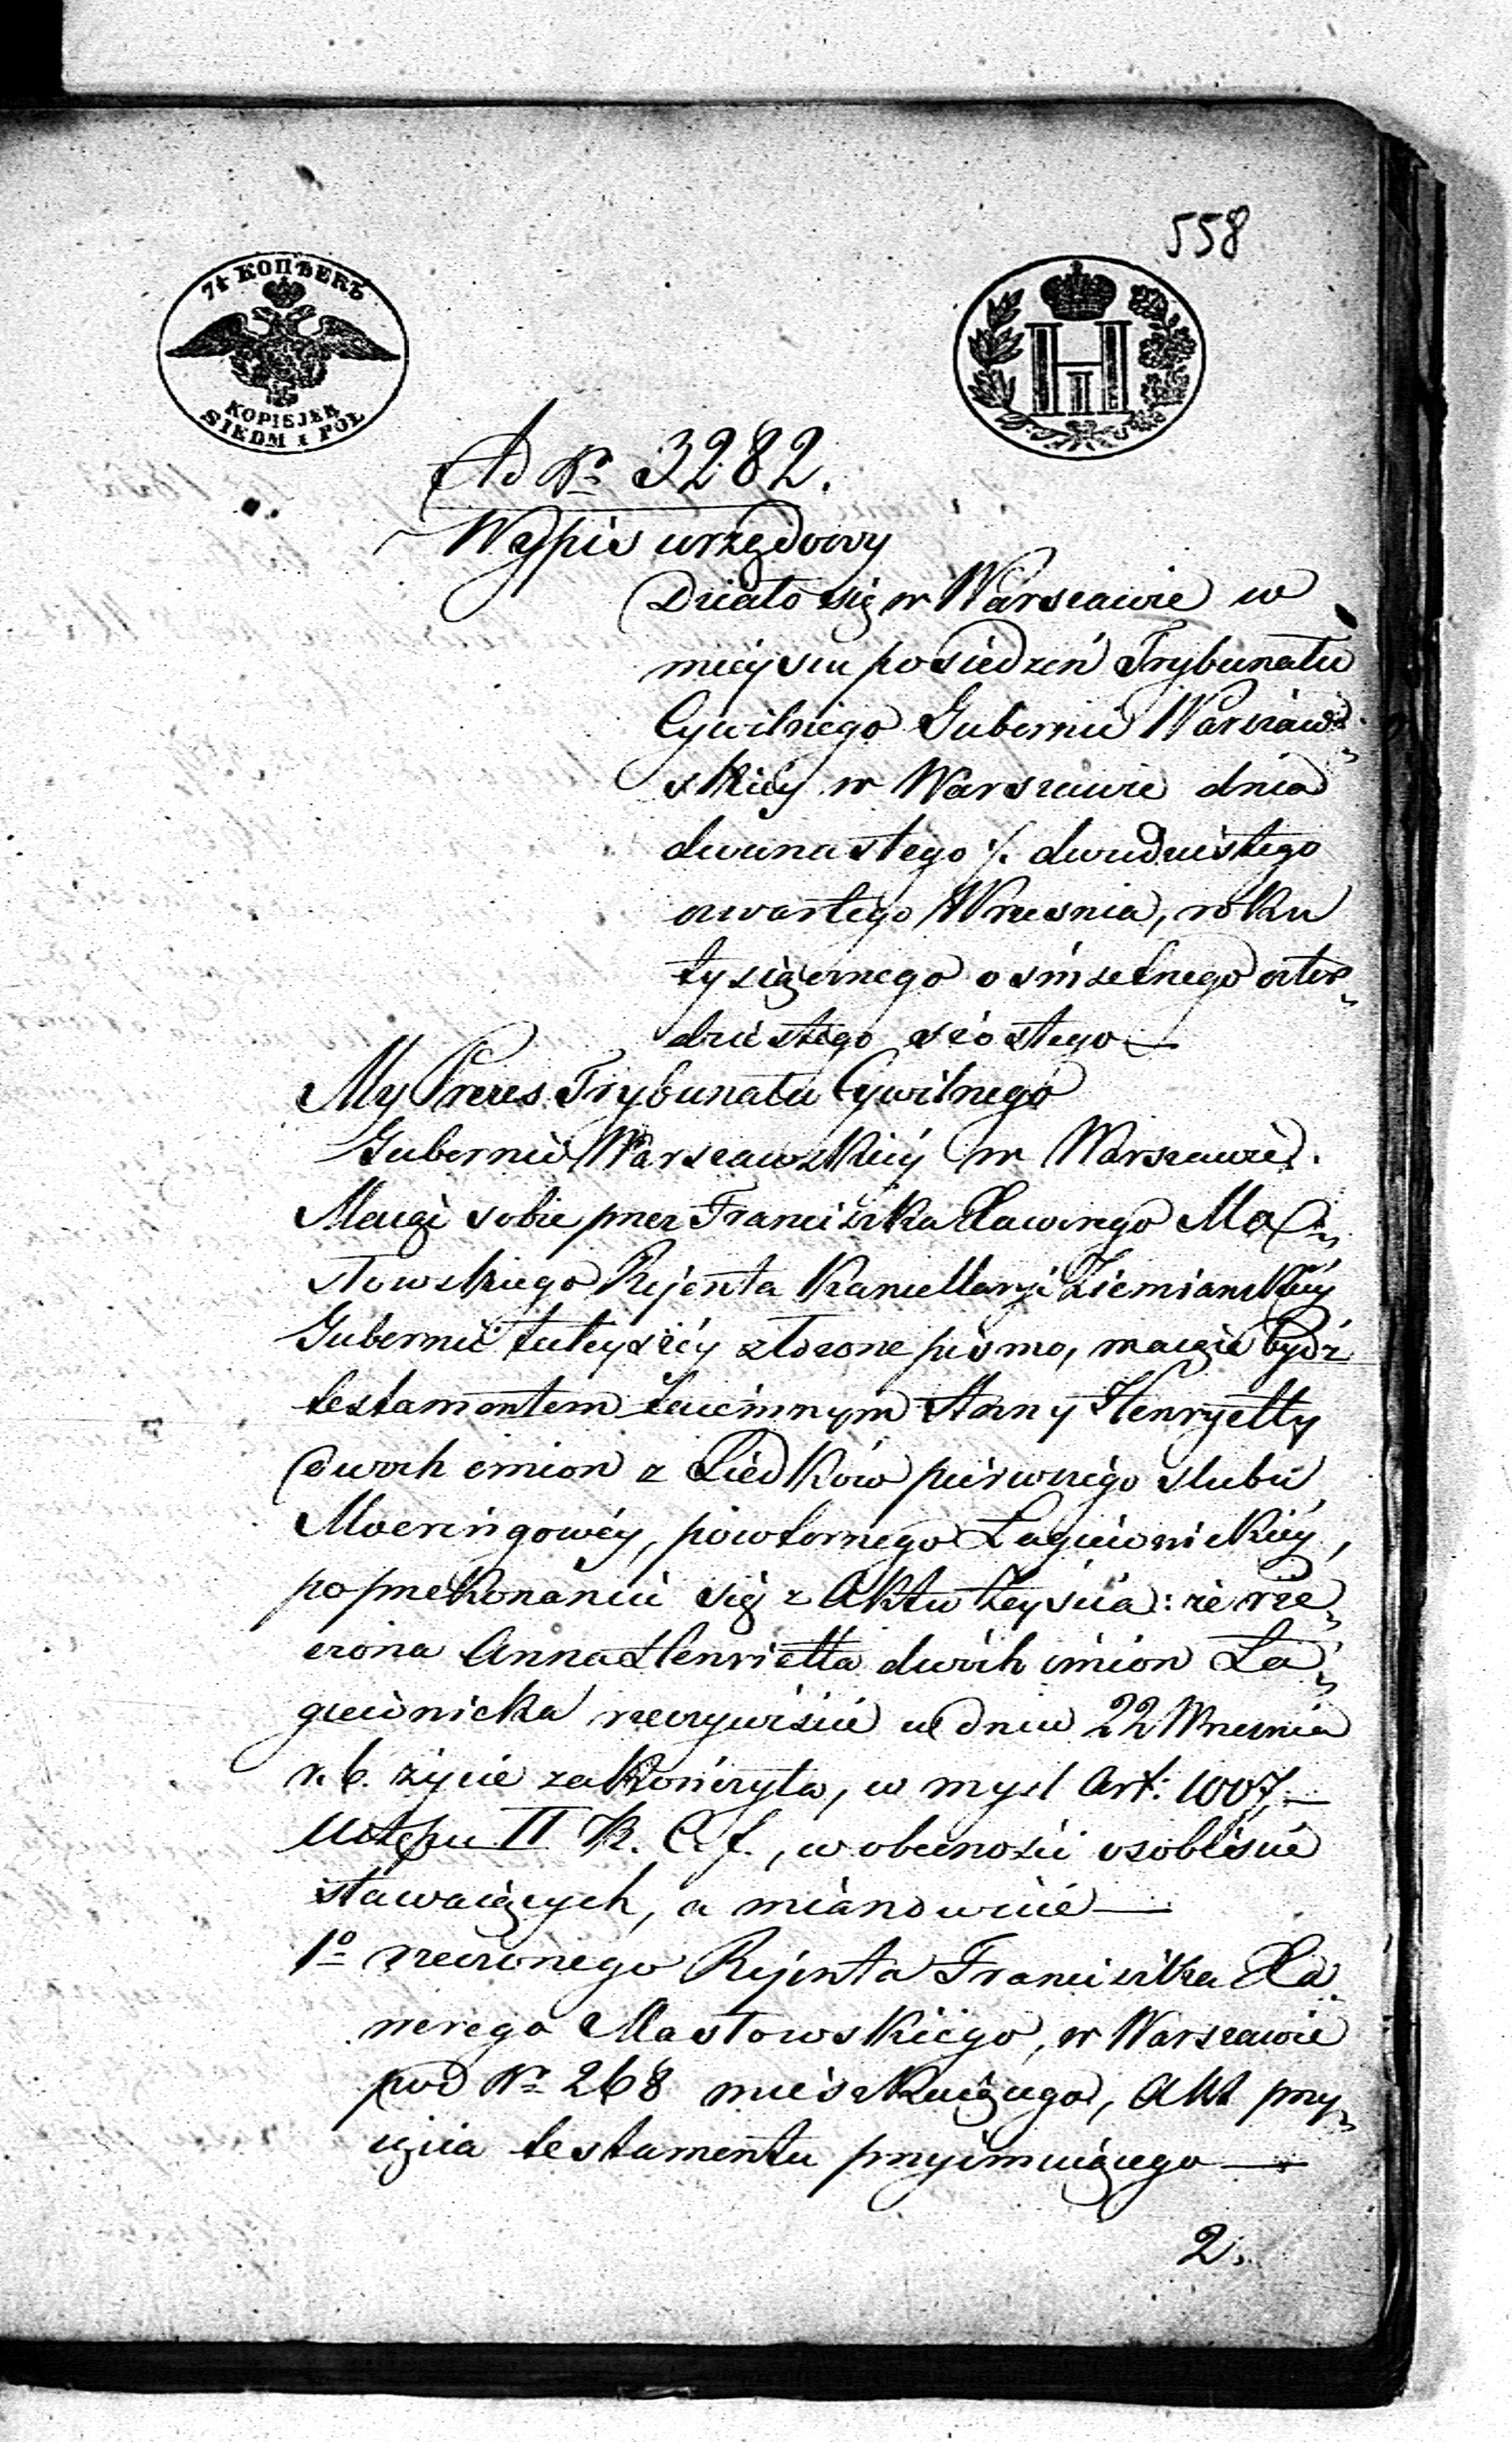 558
7½ КОПѢЕКЪ
KOPIEJEK
SIEDM i PÓŁ
Ad Nr 3282.
Wypis urzędowy
Działo się w Warszawie w
mieyscu posiedzeń Trybunału
Cywilnego Gubernii Warszaw=
skiéy w Warszawie dnia
dwunastego /. dwudziestego
czwartego Wrzesnia, roku
tysiącznego osmsetnego czter=
dziestego szóstego —
My Prezes Trybunału Cywilnego
Gubernii Warszawskiéy w Warszawie.
Maiąc sobie przez Franciszka Xawerego Ma=
słowskiego Rejenta Kancellaryi Ziemiańskiéy
Gubernii tuteyszéy złożone pismo, maiące bydź
testamentem taiemnym Anny Henryetty
dwóch imion z Liedków pierwszego slubu
Moeringowéy, powtórnego Łagiewnickiéy,
po przekonaniu się z Aktu Zeyścia: że rze=
czona Anna Henrietta dwóch imion Ła=
giewnicka rzeczywiście w dniu 22 Wrzesnia
r. b. życie zakończyła, w mysl Art: 1007. —
Ustępu II K. C. f., w obecności osobiscie
stawaiących, a mianowicie —
1º rzeczonego Rejenta Franciszka Xa=
werego Masłowskiego, w Warszawie
pod Nr 268 mieszkaiącego, Akt przy=
ięcia testamentu przyimuiącego —
2.